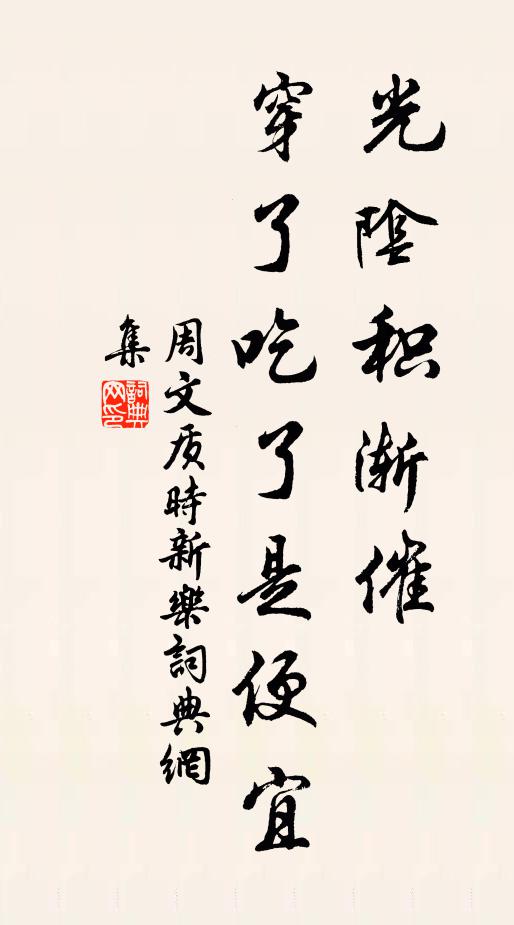 光陰积渐催
穿了吃了是便宜
周文质時新樂詞典網
集
詞典网印